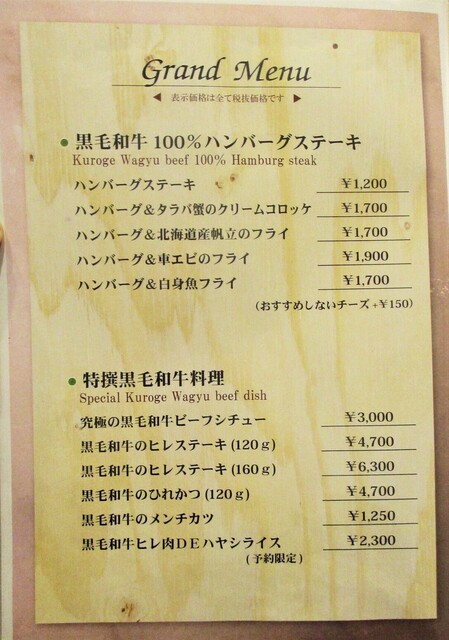 Grand Menu
◀ 表示価格は全て税抜価格です ▶
● 黒毛和牛 100%ハンバーグステーキ
Kuroge Wagyu beef 100% Hamburg steak
ハンバーグステーキ ¥1,200
ハンバーグ&タラバ蟹のクリームコロッケ ¥1,700
ハンバーグ&北海道産帆立のフライ ¥1,700
ハンバーグ&車エビのフライ ¥1,900
ハンバーグ&白身魚フライ ¥1,700
(おすすめしないチーズ+¥150)
● 特撰黒毛和牛料理
Special Kuroge Wagyu beef dish
究極の黒毛和牛ビーフシチュー ¥3,000
黒毛和牛のヒレステーキ (120g) ¥4,700
黒毛和牛のヒレステーキ (160g) ¥6,300
黒毛和牛のひれかつ (120g) ¥4,700
黒毛和牛のメンチカツ ¥1,250
黒毛和牛ヒレ肉DEハヤシライス ¥2,300
(予約限定)